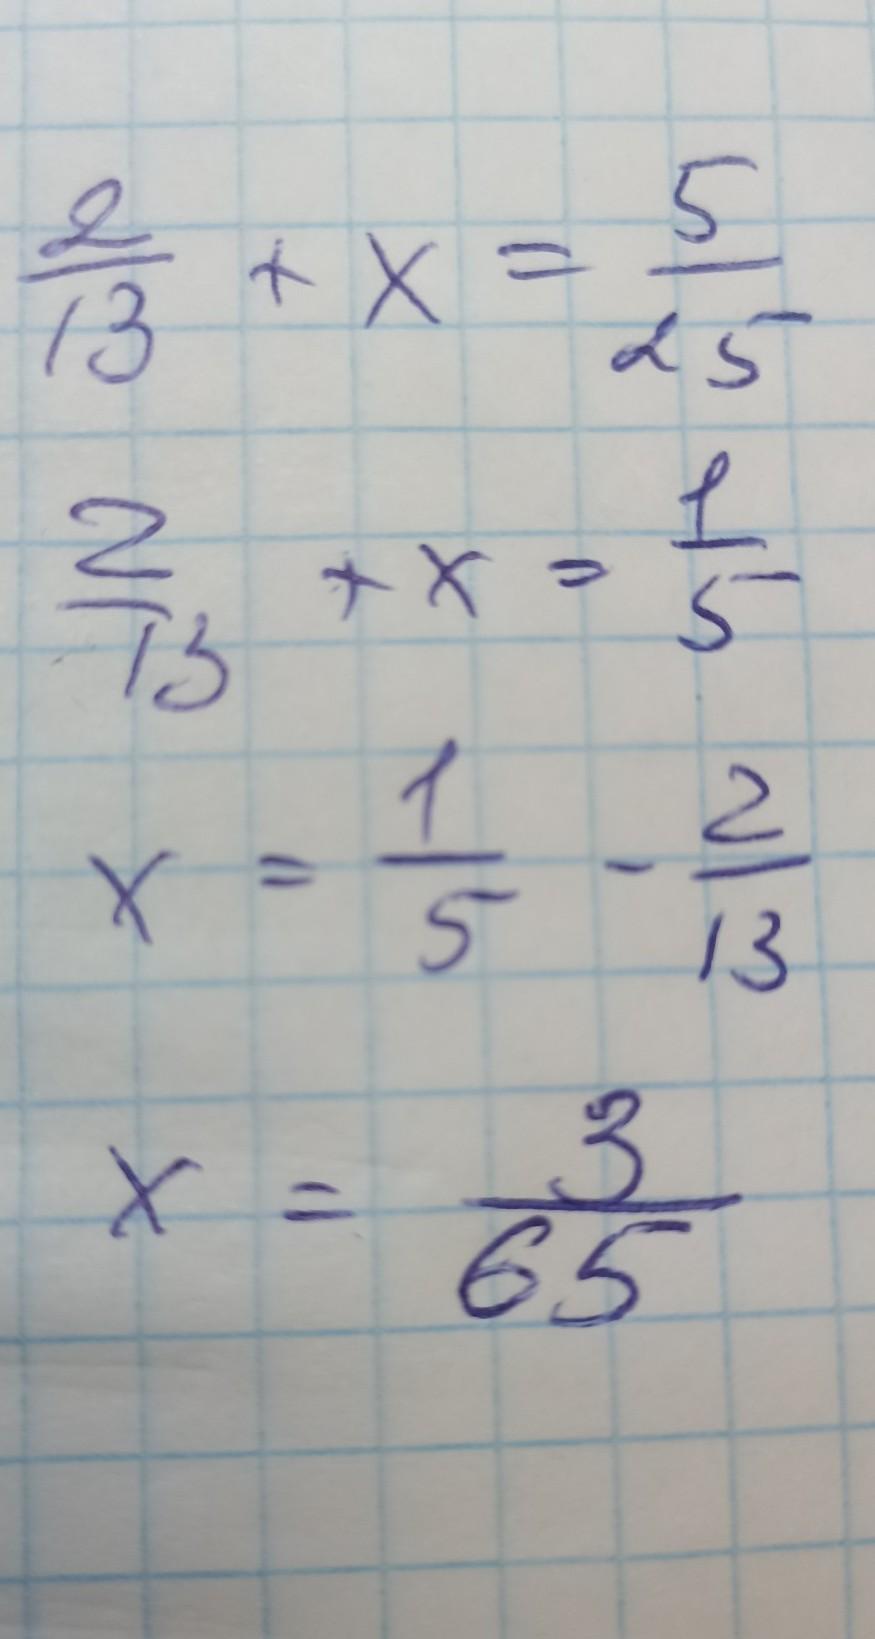 2/13 + x = 5/25
2/13 + x = 1/5
x = 1/5 - 2/13
x = 3/65